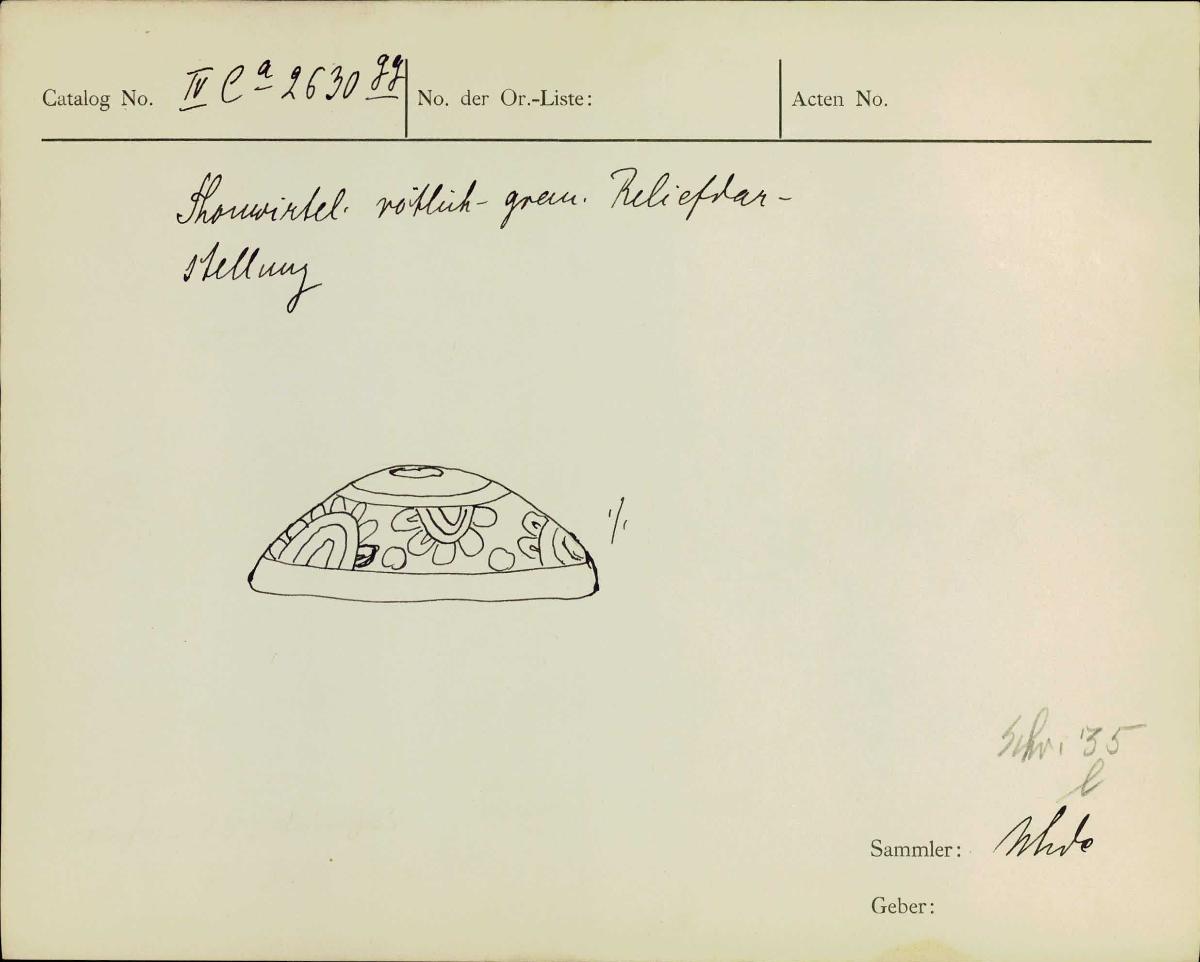 Catalog No. IV Ca 2630 gg No. der Or.-Liste: Acten No.
Thonwirtel. rötlich-grau. Reliefdar-
stellung
1/1
Schr. '35
Sammler: Uhde
Geber: